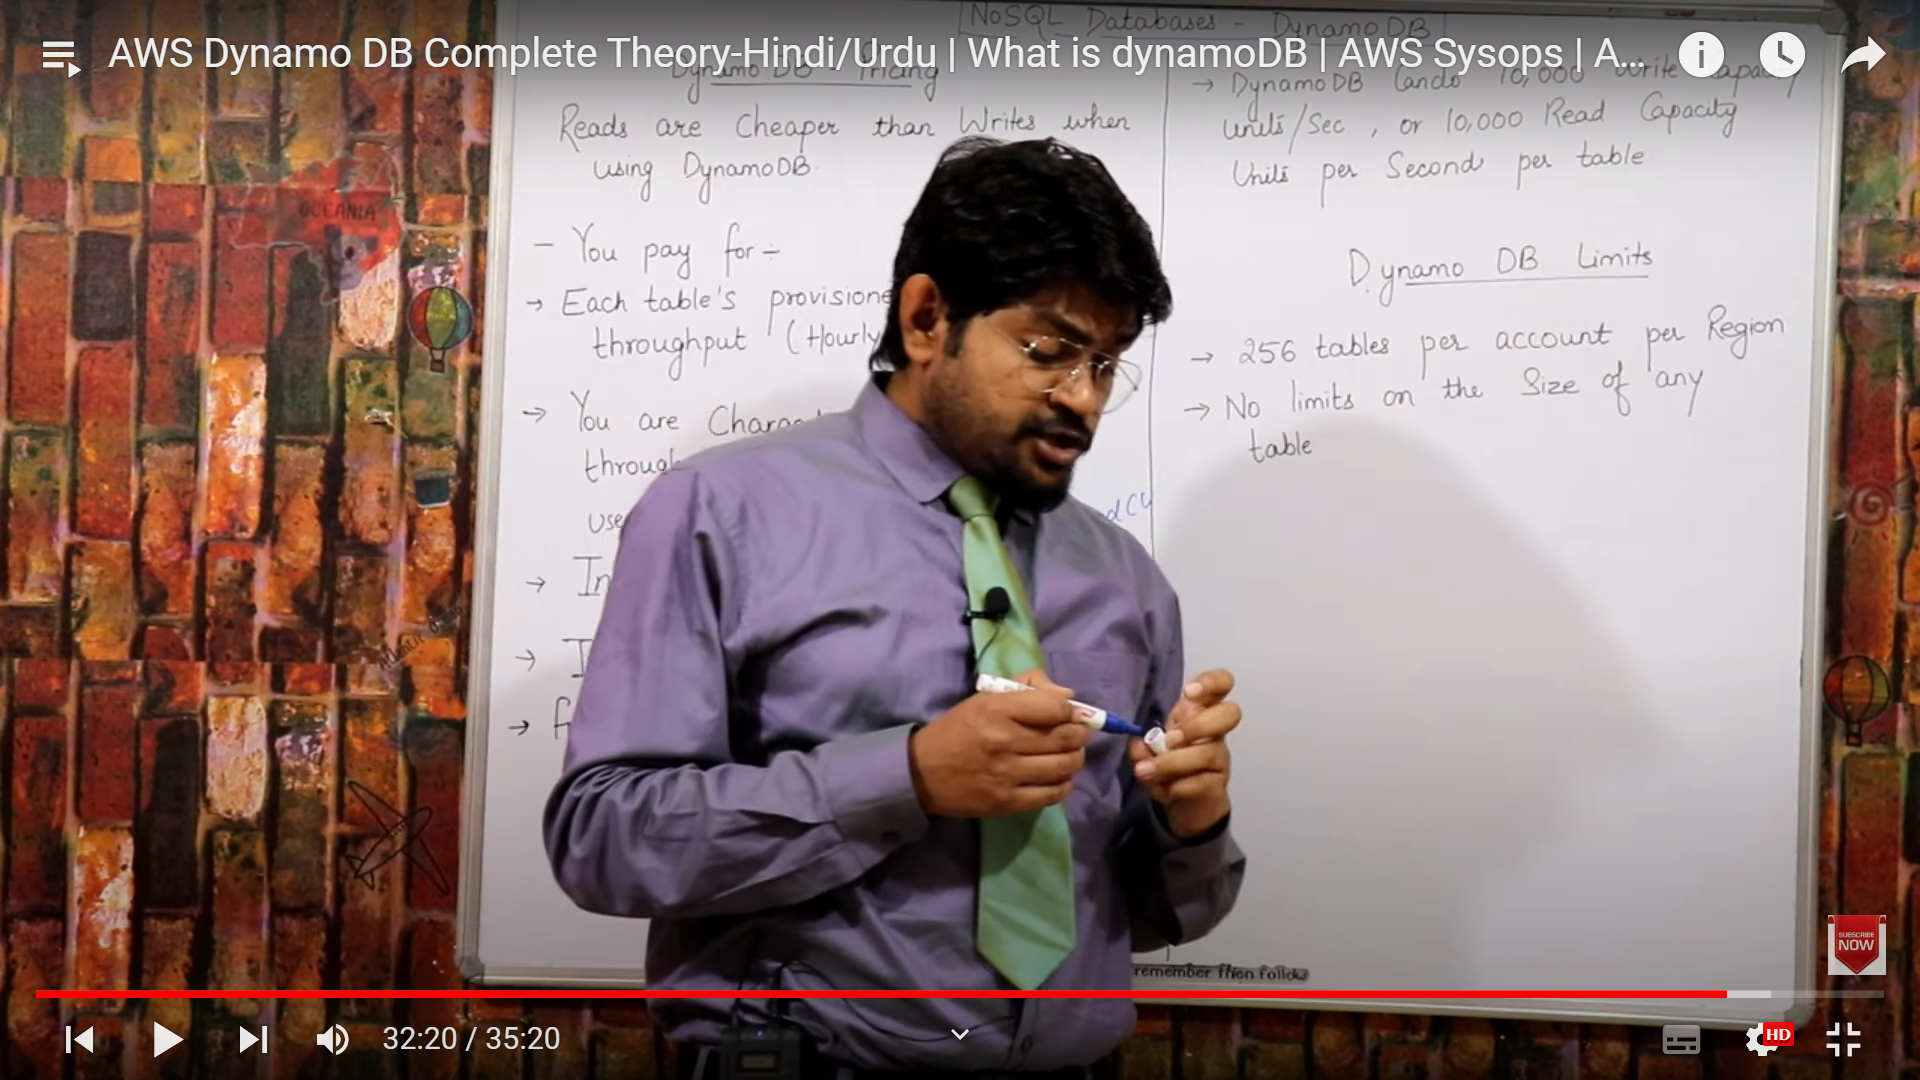 NoSQL Databases - DynamoDB
AWS Dynamo DB Complete Theory-Hindi/Urdu | What is dynamoDB | AWS Sysops | A...
Dynamo DB Pricing
Reads are Cheaper than Writes when
using DynamoDB
- You pay for ÷
→ Each table's provisione
throughput (Hourly
→ You are Charg
throug
use
→ In
→ I
→
dCU
→ DynamoDB 10,000 Write Capacity
units/Sec, or 10,000 Read Capacity
Units per Second per table
Dynamo DB Limits
→ 256 tables per account per Region
→ No limits on the Size of any
table
OCEANIA
remember then follow
SUBSCRIBE
NOW
32:20 / 35:20
HD